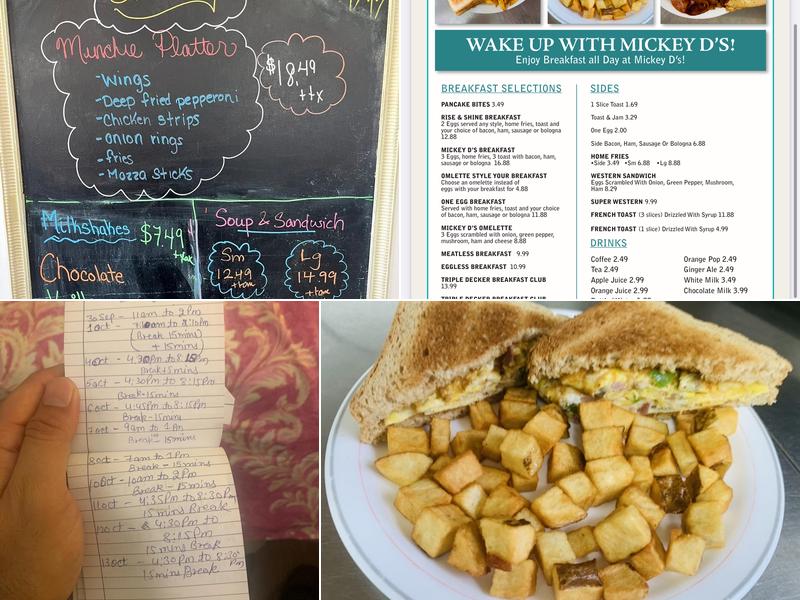 Munchie Platter
-Wings
-Deep fried pepperoni
-Chicken strips
-onion rings
-fries
-Mozza Sticks
$18.49
+tx
Milkshakes
$7.49
+tax
Chocolate
Soup & Sandwich
Sm
12.49
+tax
Lg
14.99
+tax
WAKE UP WITH MICKEY D'S!
Enjoy Breakfast all Day at Mickey D's!
BREAKFAST SELECTIONS
PANCAKE BITES 3.49
RISE & SHINE BREAKFAST
2 Eggs served any style, home fries, toast and
your choice of bacon, ham, sausage or bologna
12.88
MICKEY D'S BREAKFAST
3 Eggs, home fries, 3 toast with bacon, ham,
sausage or bologna 16.88
OMLETTE STYLE YOUR BREAKFAST
Choose an omelette instead of
eggs with your breakfast for 4.88
ONE EGG BREAKFAST
Served with home fries, toast and your choice
of bacon, ham, sausage or bologna 11.88
MICKEY D'S OMELETTE
3 Eggs scrambled with onion, green pepper,
mushroom, ham and cheese 8.88
MEATLESS BREAKFAST 9.99
EGGLESS BREAKFAST 10.99
TRIPLE DECKER BREAKFAST CLUB
13.99
TRIPLE DECKER BREAKFAST CLUB
SIDES
1 Slice Toast 1.69
Toast & Jam 3.29
One Egg 2.00
Side Bacon, Ham, Sausage Or Bologna 6.88
HOME FRIES
•Side 3.49 •Sm 6.88 •Lg 8.88
WESTERN SANDWICH
Eggs Scrambled With Onion, Green Pepper, Mushroom,
Ham 8.29
SUPER WESTERN 9.99
FRENCH TOAST (3 slices) Drizzled With Syrup 11.88
FRENCH TOAST (1 slice) Drizzled With Syrup 4.99
DRINKS
Coffee 2.49
Tea 2.49
Apple Juice 2.99
Orange Juice 2.99
Orange Pop 2.49
Ginger Ale 2.49
White Milk 3.49
Chocolate Milk 3.99
30 Sep - 11am to 2Pm
1 Oct - to 8:10Pm
(Break 15mins)
+ 15mins
4 Oct - 4:30Pm to 8:15Pm
Break 15mins
5 Oct - 4:30Pm to 8:15Pm
Break-15mins
6 Oct - 4:45Pm to 8:15Pm
Break-15mins
7 Oct - 9am to 1Pm
Break - 15mins
8 Oct - 7am to 1Pm
Break - 15mins
10 Oct - 10am to 2Pm
Break - 15mins
11 Oct - 4:35Pm to 8:30Pm
15mins Break
12 Oct - 4:30Pm to
8:15Pm
15mins Break
13 Oct - 4:30Pm to 8:30Pm
15mins Break